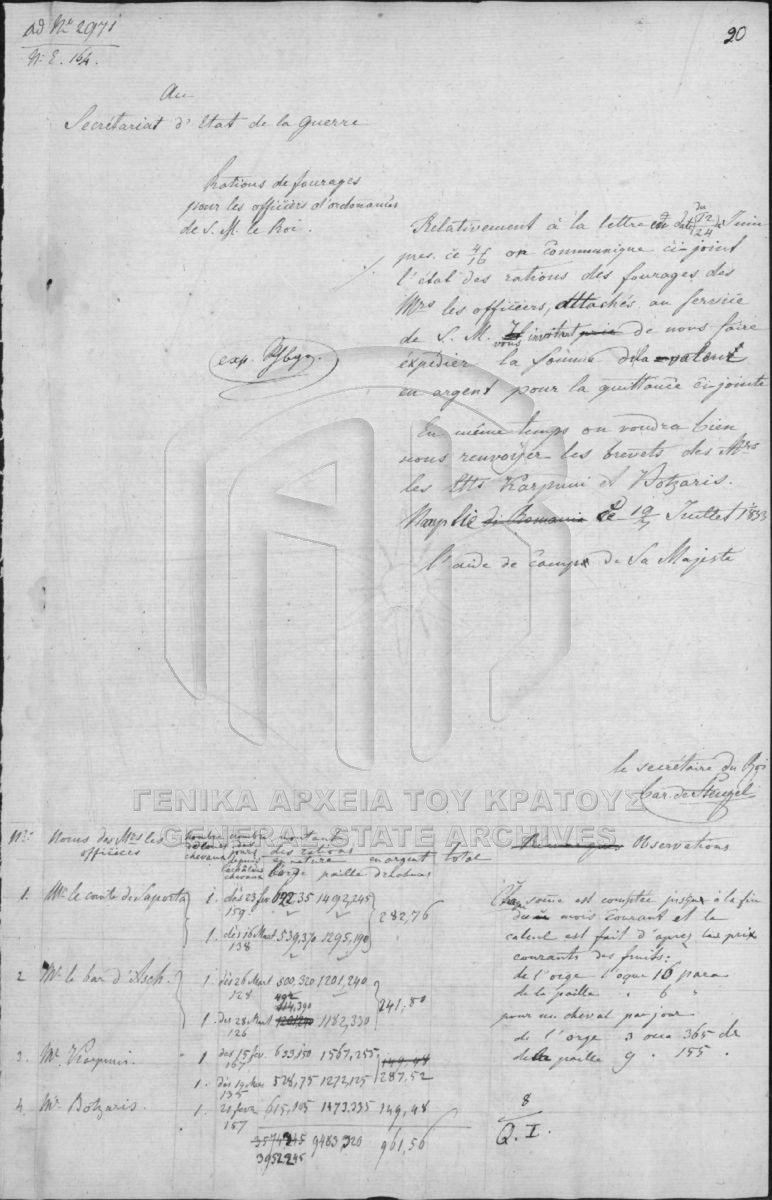 ad No 2971
20
N: E. 164.
Au
Secrétariat d'Etat de la Guerre
Rations de fourages
pour les officiers d'ordonnances
de S. M. le Roi.
Relativement à la lettre en date du 12/24 de Juin
pres. ce 4/16 on communique ci-joint
l'état des rations des fourages des
Mrs les officiers, attachés au service
de S. M. vous invitant de nous faire
expédier la somme
en argent pour la quittance ci-jointe
En même temps on voudra bien
nous renvoyer les brevets des Mrs
les Karpuni et Botzaris.
Nauplie di Romania ce 19/ Juillet 1833
l'aide de camp de Sa Majeste
exp.
le secrétaire du Roi
bar. de Stengel
ΓΕΝΙΚΑ ΑΡΧΕΙΑ ΤΟΥ ΚΡΑΤΟΥΣ
GENERAL STATE ARCHIVES
Nr. Noms des Mrs les officiers
nombre de leurs chevaux
nombre des jours depuis
montant des rations
en nature en argent total
l'orge paille
Remarques Observations
1. Mr. le comte de Saporta 1. dès 23 fev 159 622,35 1492,245
1. dès 16 Mart 138 539,370 1295,190
282,76
2 Mr. le bar d'Asch. 1 dès 26 Mart 128 500,320 1201,240
492
114,390
1. des 28 Mart 126 1182,330
241,80
3. Mr. Karpuni. 1 des 15 fev. 167 623,150 1567,255
1. dès 19 Mar 135 528,75 1272,125
149,48
287,52
4. Mr. Botzaris. 1. 21 fevr 157 615,105 1473,335 149,48
3574245 9483,320 961,56
3952245
somme est comptée jusqu'à la fin
du mois courant et le
calcul est fait d'après les prix
courants des fruits:
de l'orge l'oque 16 para
de la paille " 6 "
pour un cheval par jour
de l'orge 3 oca 365 dr
de la paille 9 " 155 "
8
Q. I.